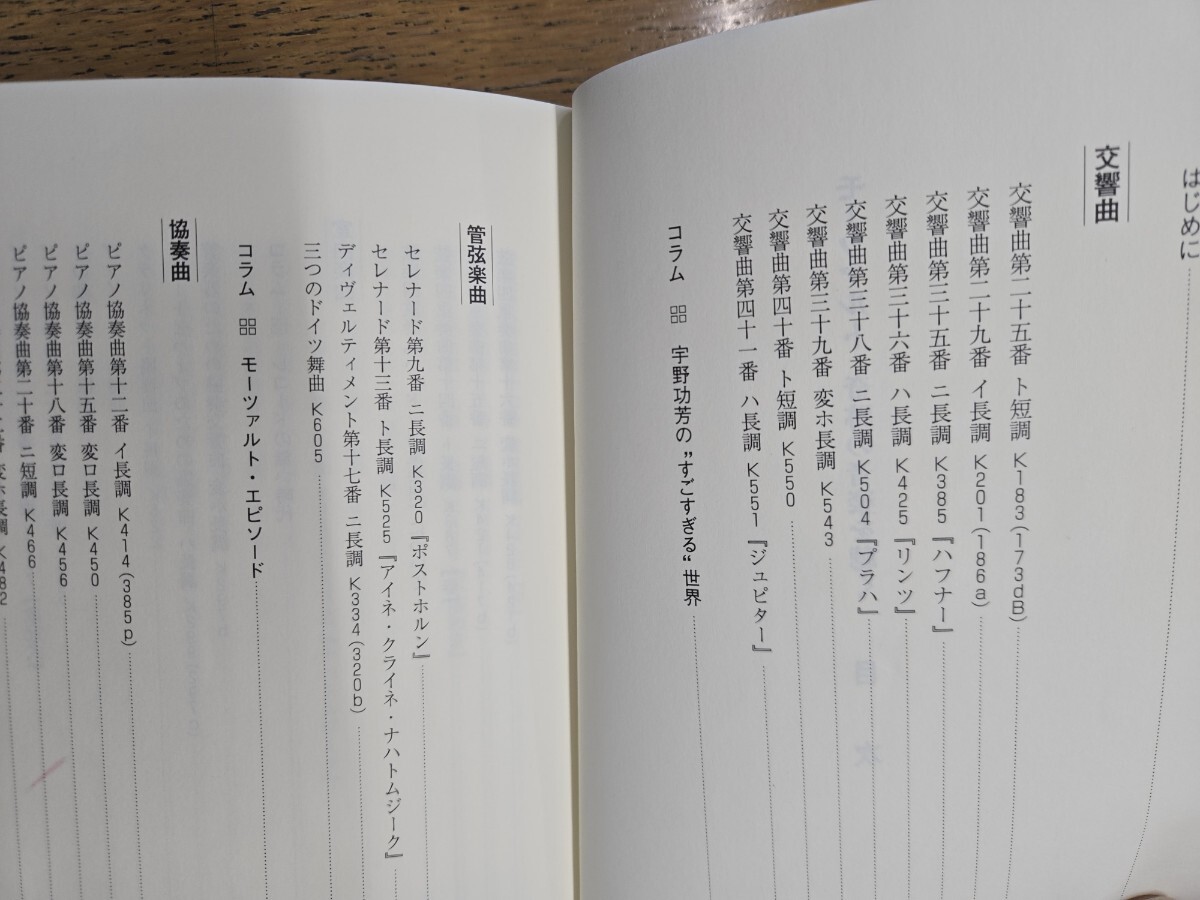 はじめに
交響曲
交響曲第二十五番 ト短調 K183(173dB)
交響曲第二十九番 イ長調 K201(186a)
交響曲第三十五番 ニ長調 K385『ハフナー』
交響曲第三十六番 ハ長調 K425『リンツ』
交響曲第三十八番 ニ長調 K504『プラハ』
交響曲第三十九番 変ホ長調 K543
交響曲第四十番 ト短調 K550
交響曲第四十一番 ハ長調 K551『ジュピター』
コラム 宇野功芳の”すごすぎる“世界
管弦楽曲
セレナード第九番 ニ長調 K320『ポストホルン』
セレナード第十三番 ト長調 K525『アイネ・クライネ・ナハトムジーク』
ディヴェルティメント第十七番 ニ長調 K334(320b)
三つのドイツ舞曲 K605
コラム モーツァルト・エピソード
協奏曲
ピアノ協奏曲第十二番 イ長調 K414(385p)
ピアノ協奏曲第十五番 変ロ長調 K450
ピアノ協奏曲第十八番 変ロ長調 K456
ピアノ協奏曲第二十番 ニ短調 K466
変ホ長調 K482